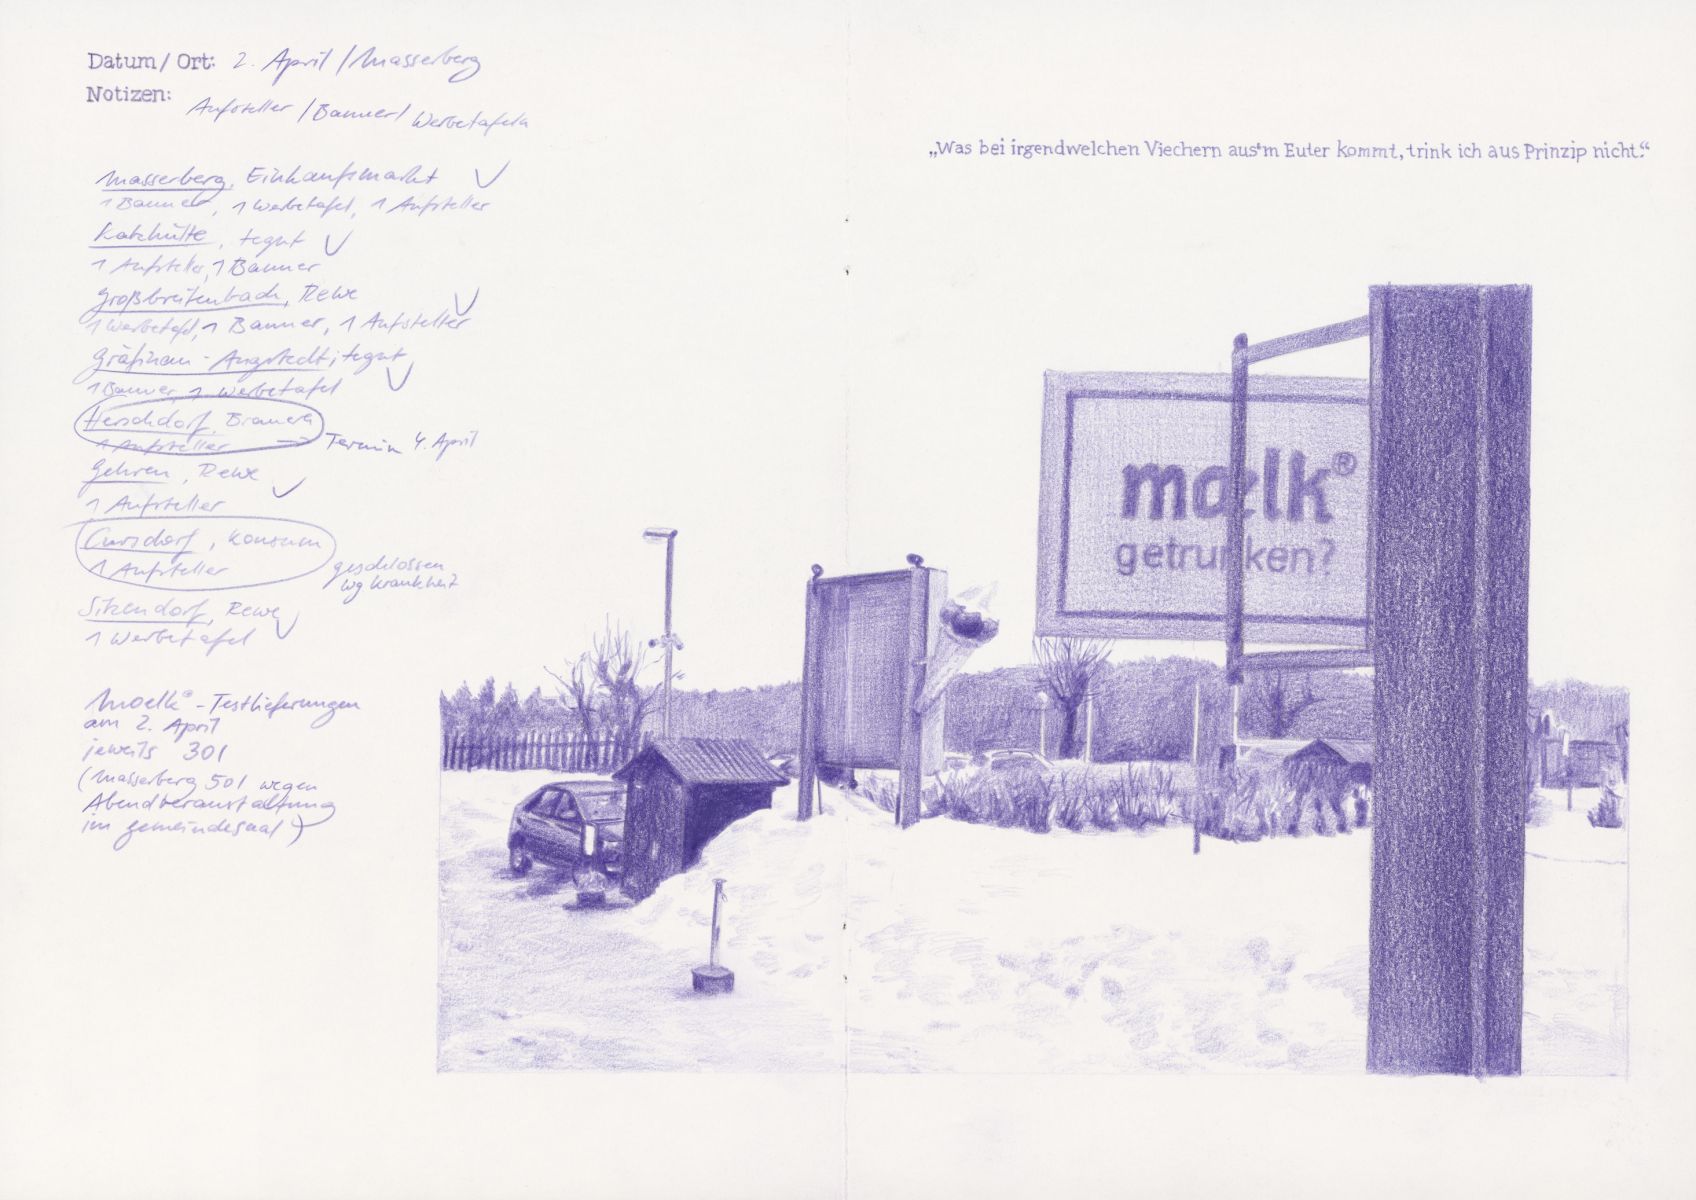 Datum/ Ort: 2. April / Masserberg
Notizen: Aufsteller / Banner / Werbetafeln
Masserberg, Einkaufsmarkt ✓
1 Banner, 1 Werbetafel, 1 Aufsteller
Katzhütte, tegut ✓
1 Aufsteller, 1 Banner
Großbreitenbach, Rewe ✓
1 Werbetafel, 1 Banner, 1 Aufsteller
Gräfinau-Angstedt, tegut ✓
1 Banner, 1 Werbetafel
Herschdorf, Brauerei
1 Aufsteller → Termin 4. April
Gehren, Rewe ✓
1 Aufsteller
Cursdorf, Konsum
1 Aufsteller
geschlossen
wg Krankheit
Sitzendorf, Rewe ✓
1 Werbetafel
Moelk®-Testlieferungen
am 2. April
jeweils 30 l
(Masserberg 50 l wegen
Abendveranstaltung
im Gemeindesaal)
„Was bei irgendwelchen Viechern aus'm Euter kommt, trink ich aus Prinzip nicht.“
mœlk®
getrunken?